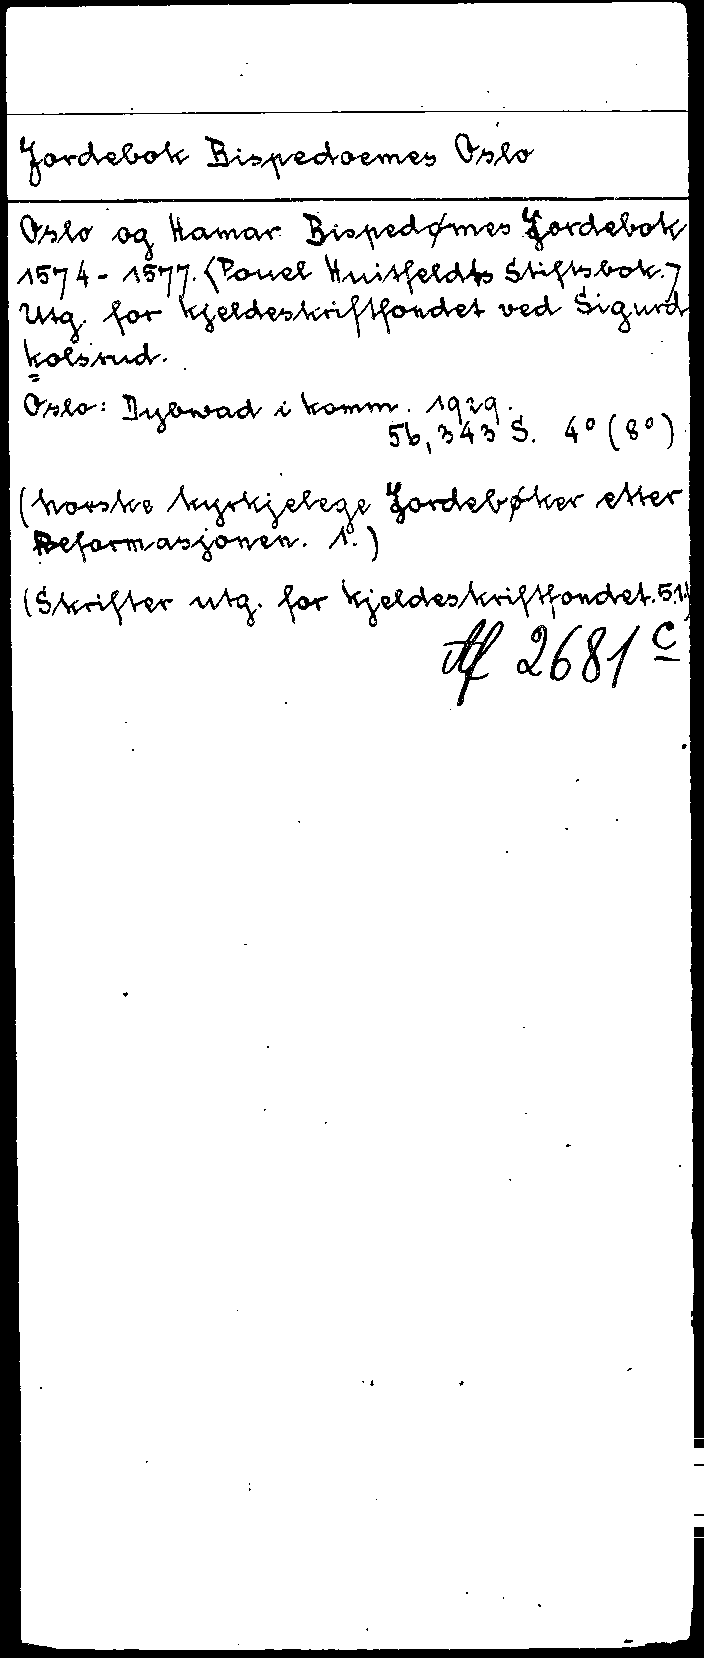 Jordebok Bispedoemes Oslo
Oslo og Hamar Bispedømes Jordebok
1574-1577. <Povel Huitfeldts Stiftsbok.>
Utg. for kjeldeskriftfondet ved Sigurd
Kolsrud.
Oslo: Dybwad i komm. 1929.
56, 343 S. 4° (8°)
(Norske kyrkjelege Jordebøker etter
Reformasjonen. 1.)
(Skrifter utg. for kjeldeskriftfondet. 51.)
Af 2681 c